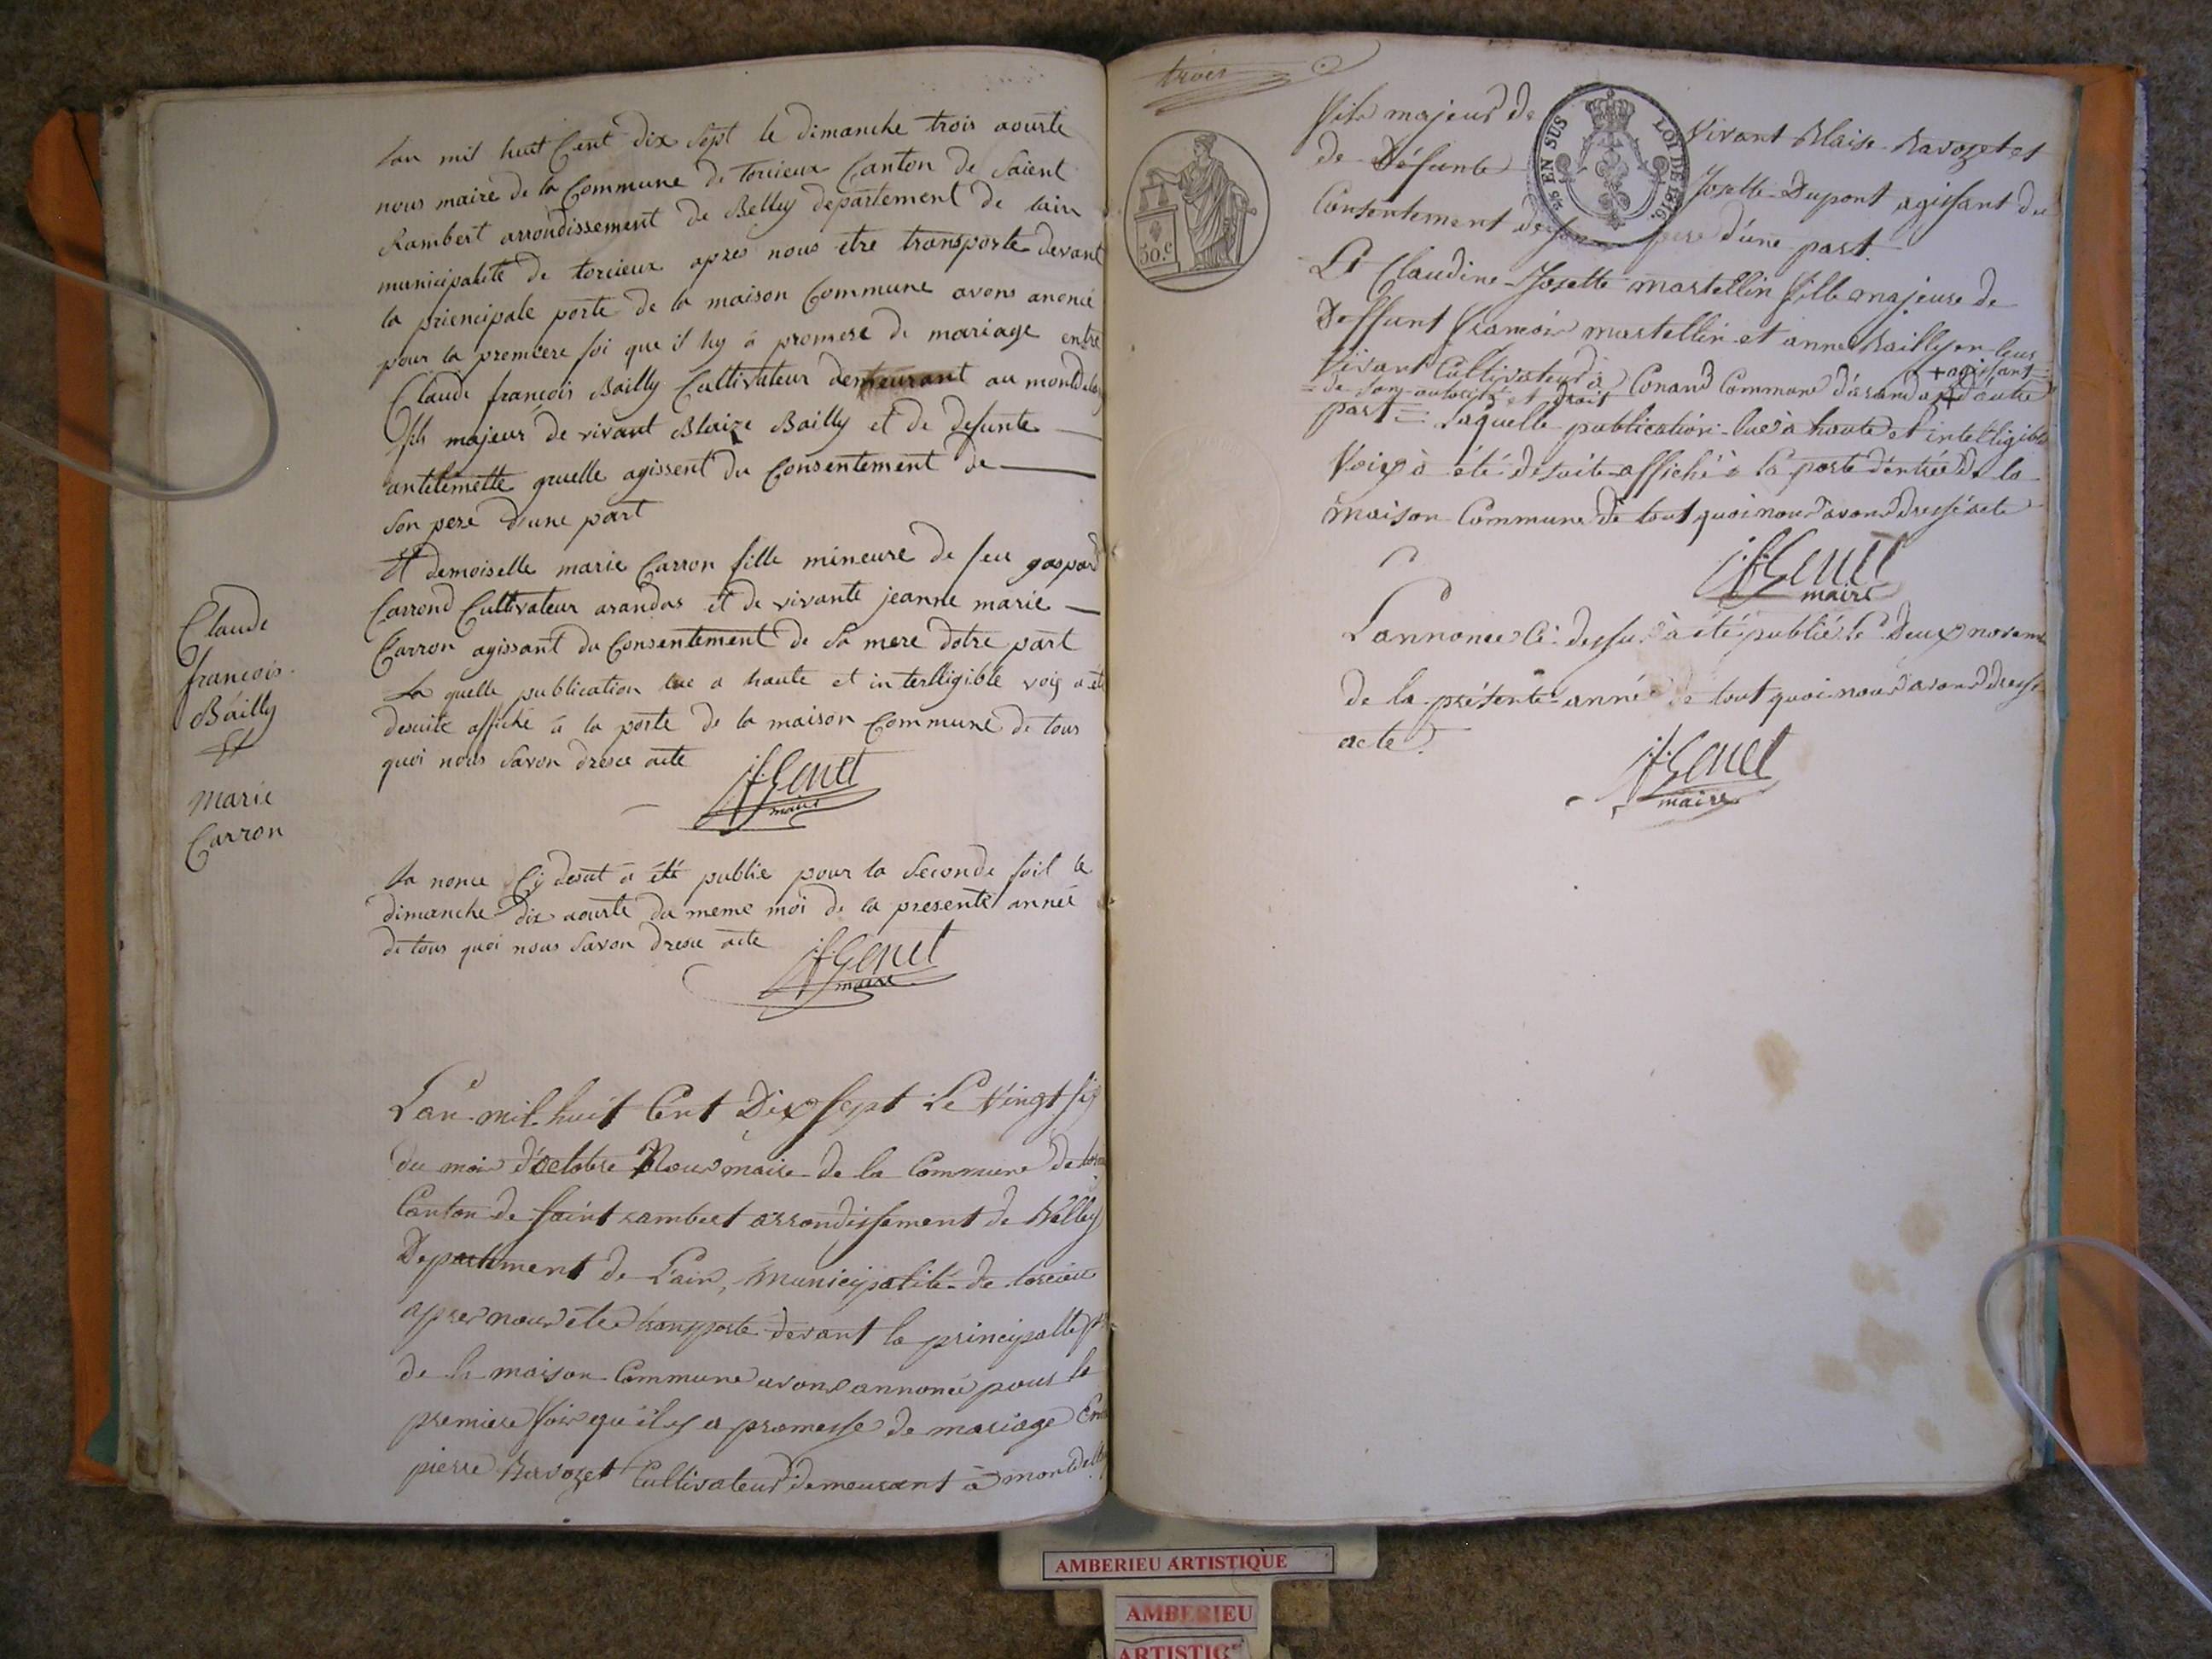 Claude
francois
Bailly
Et
marie
Carron
Lan mil huit Cent dix Sept le dimanche trois aourte
nous maire de la Commune de torcieux Canton de Saient
Rambert arrondissement de Belley departement de lain
municipalité de torcieux apres nous etre transporte devant
la priencipale porte de la maison Commune avons anoncé
pour la premiere foi que il hy à promese de mariage entre
Claude françois Bailly Cultivateur demeurant au montdelay
fils majeur de vivant Blaize Bailly et de defunte
antelemette gruelle agissent du Consentement de
Son pere dune part
Et demoiselle marie Carron fille mineure de feu gaspard
Carrond Cultivateur arandas et de vivante jeanne marie
Carron agissant du Consentement de Sa mere dotre part
La quelle publication lue a haute et interlligible voix a été
desuite affiché à la porte de la maison Commune de tous
quoi nous Savon drese acte
jfGenet
maire
La nonce Cy desut a été publie pour la Seconde foil le
dimanche dix aourte du meme moi de la presente année
de tous quoi nous Savon drese acte
jfGenet
maire
L'an mil huit Cent Dix Sept Le Vingt six
du mois d'octobre Nous maire de la Commune de
Canton de Saint rambert arrondissement de Belley
Departement de L'ain, Municipalité de torcieu
apres nous être transporté devant la principalle
de la maison Commune avons annoncé pour la
premiere fois qu'il y a promesse de mariage
pierre Ravozet Cultivateur demeurant à
trois
30.c
EN SUS LOI DE 1816.
fils majeur de Vivant Blaise Ravozet et
de Défunte Josette Dupont agissant du
Consentement de son pere d'une part.
Et Claudine Josette martellin fille majeure de
Deffunt francois martellin et anne Bailly en leur
+ agissant
Vivant Cultivateur à Conand Commune d'arandas + d'autre
de son autorité et droit
part = Laquelle publication lue à haute et intelligible
Voix à été de suite affiché à la porte d'entrée de la
maison Commune de tout quoi nous avons dressé acte
jfGenet
maire
L'annonce Ci dessus à été publié le Deux
de la présente année de tout quoi nous avons dressé
acte.
jfGenet
maire
AMBERIEU ARTISTIQUE
AMBERIEU
ARTISTIQ